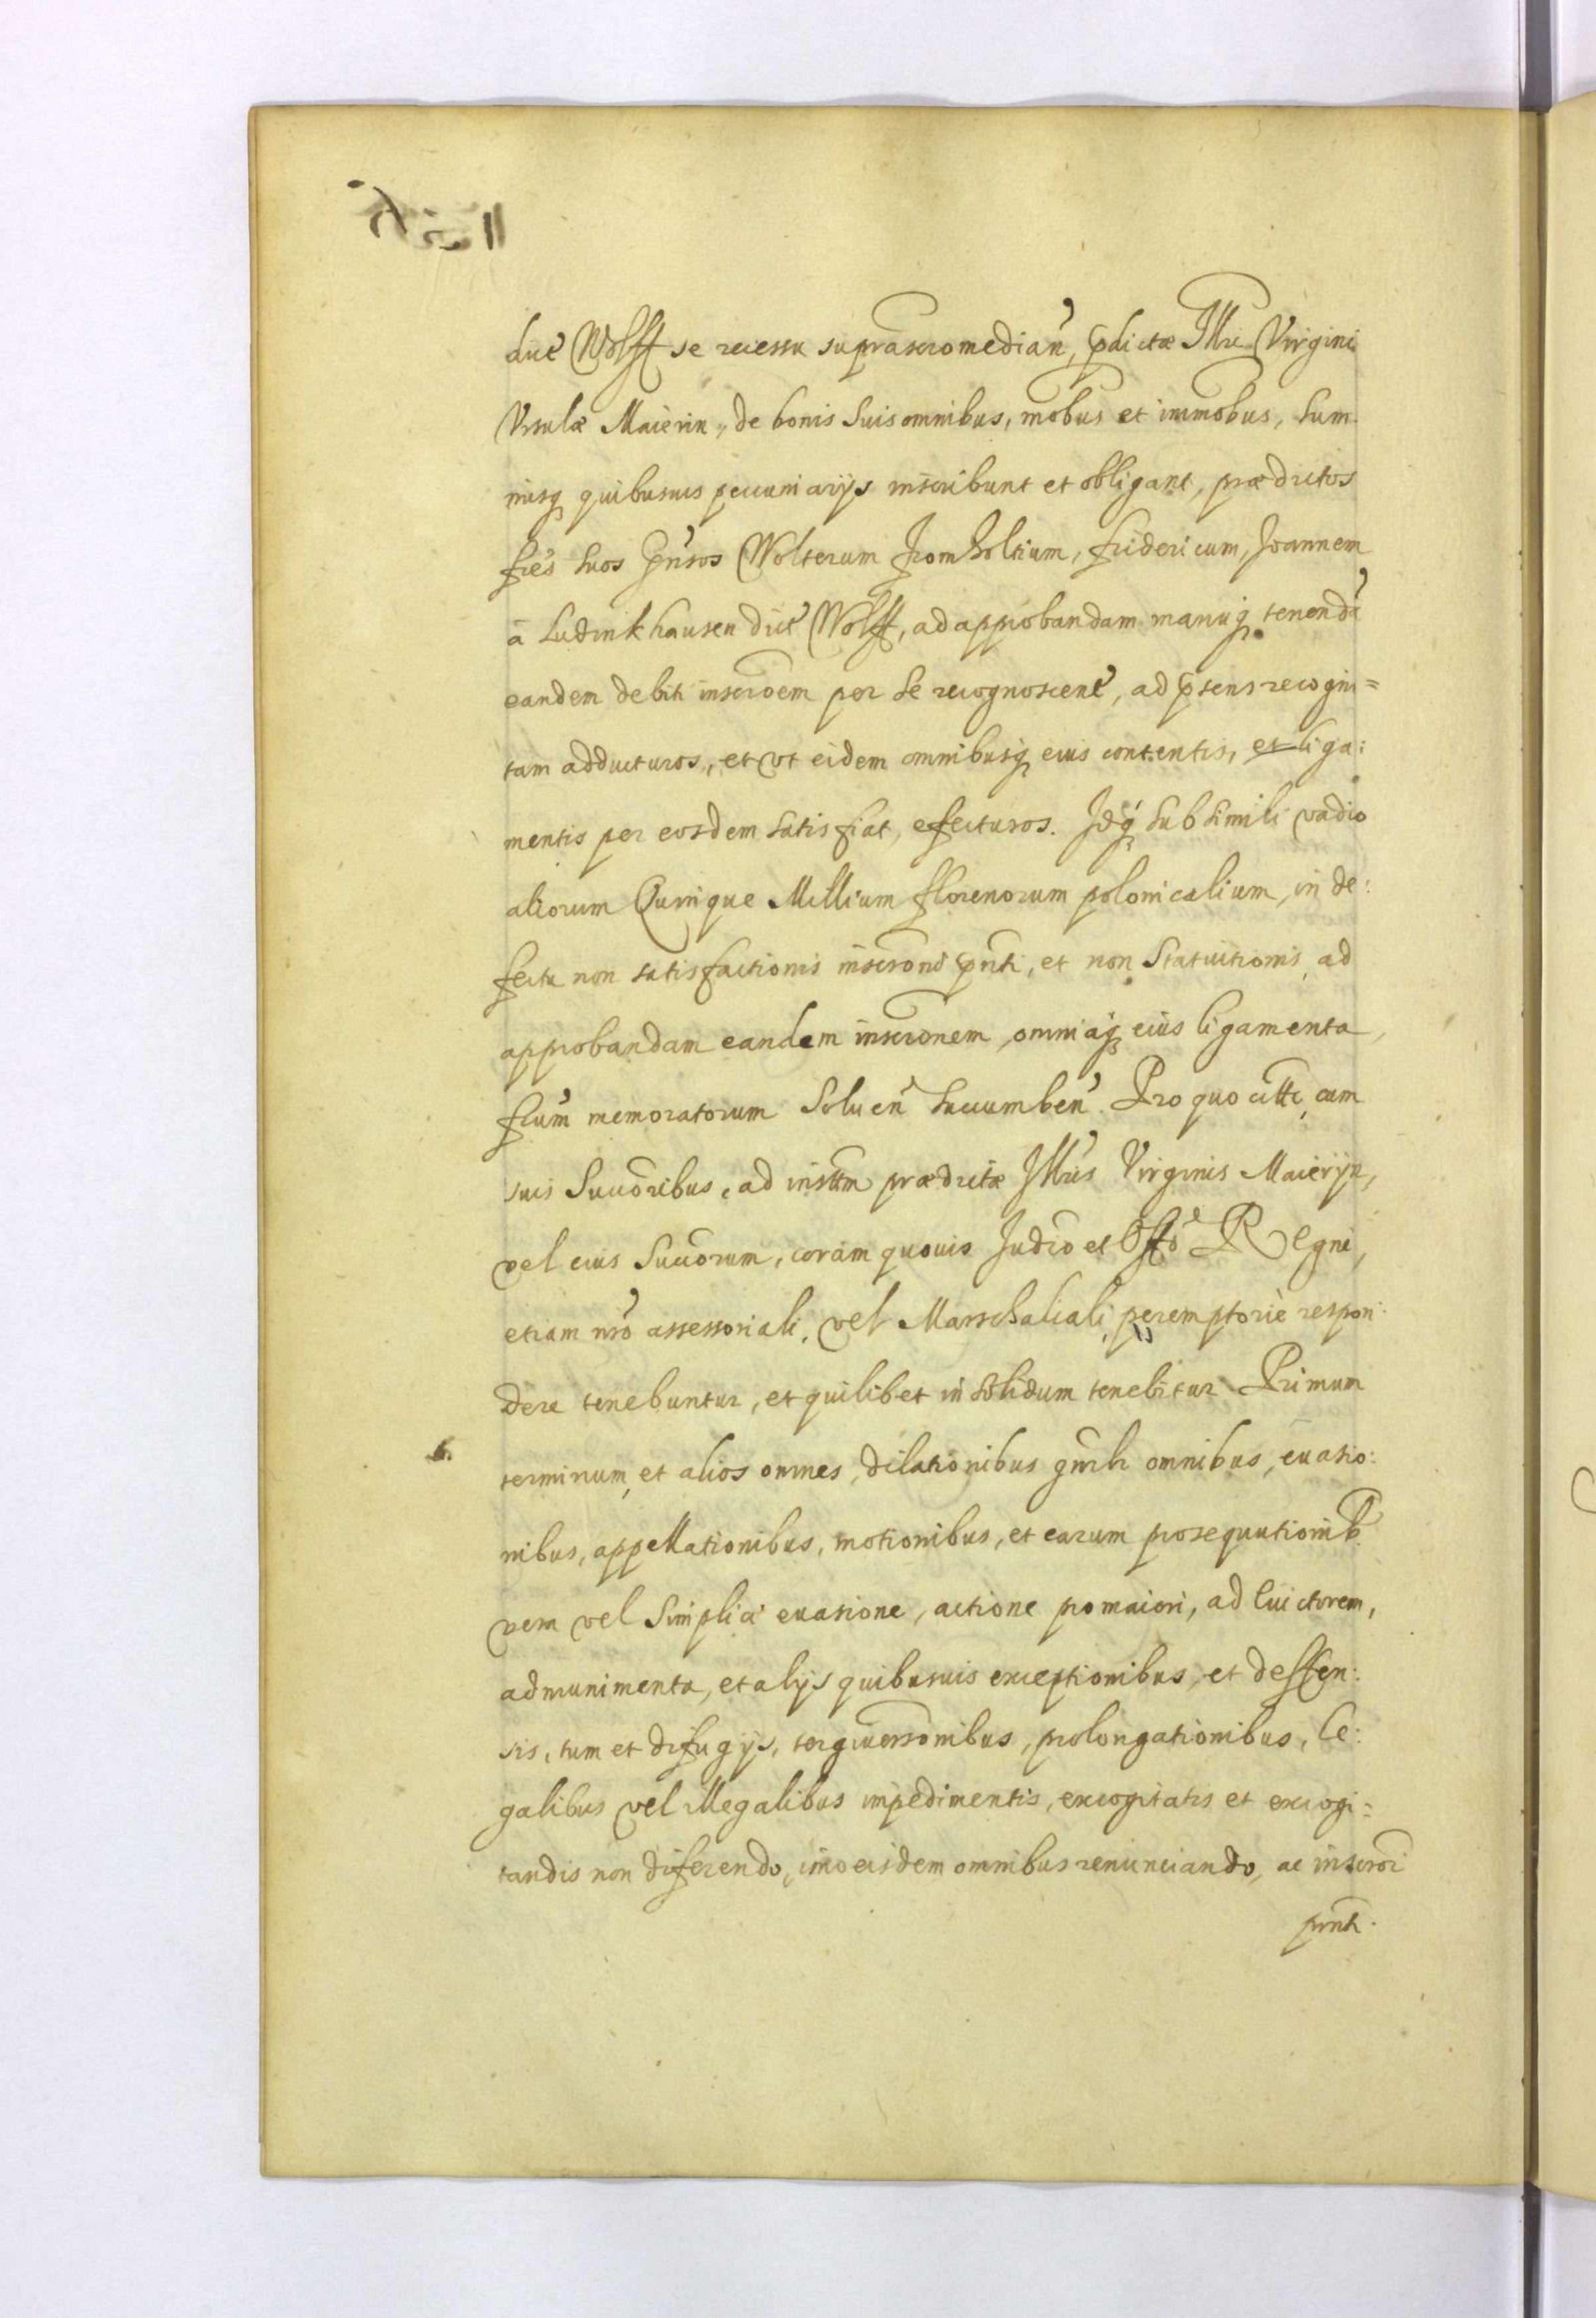 dict Wolff se recessu suprascromedian, pdictæ Illri Virgini
Vrsulæ Maierin, de bonis suis omnibus, mobus et immobus, sum
misq quibusuis pecuniarijs inscribunt et obligant, prædictos
fres suos Gnsos Wolterum Fromholtium, Fridericum, Joannem
à Ludinkhausen dict Wolff, ad approbandam manuq tenendā
eandem debiti inscroem per se recognoscent, ad psens recogni=
tam adducturos, et vt eidem omnibusq eius contentis, et liga:
mentis per eosdem satisfiat, effecturos. Idq sub simili vadio
aliorum Quinque Millium florenorum polonicalium, in de:
fectu non satisfactionis inscronis pnti, et non statuitionis, ad
approbandam eandem inscronem, omniaq eius ligamenta,
frum memoratorum soluen succumben. Pro quo citti, cum
suis succoribus, ad insttm prædictæ Illris Virginis Maierijn,
vel eius succorum, coram quouis Judicio et Offo Regni,
etiam nro assessoriali, vel Marschaliali, peremptoriè respon:
dere tenebuntur, et quilibet in solidum tenebitur. Primum
terminum, et alios omnes, dilationibus gnrli omnibus, euasio:
nibus, appellationibus, motionibus, et earum prosequutionib
vera vel simplici euasione, actione pro maiori, ad Euictorem,
ad munimenta, et alijs quibusuis exceptionibus, et deffen:
sis, tum et difugijs, tergiuersonibus, prolongationibus, le:
galibus vel illegalibus impedimentis, excogitatis et excogi=
tandis non differendo, imo eisdem omnibus renunciando, ac inscroi
pnti.